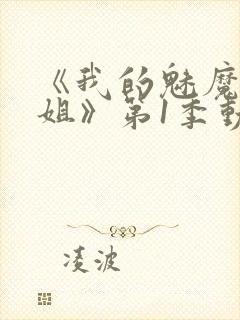 《我的魅魔
姐》第1季動
凌波